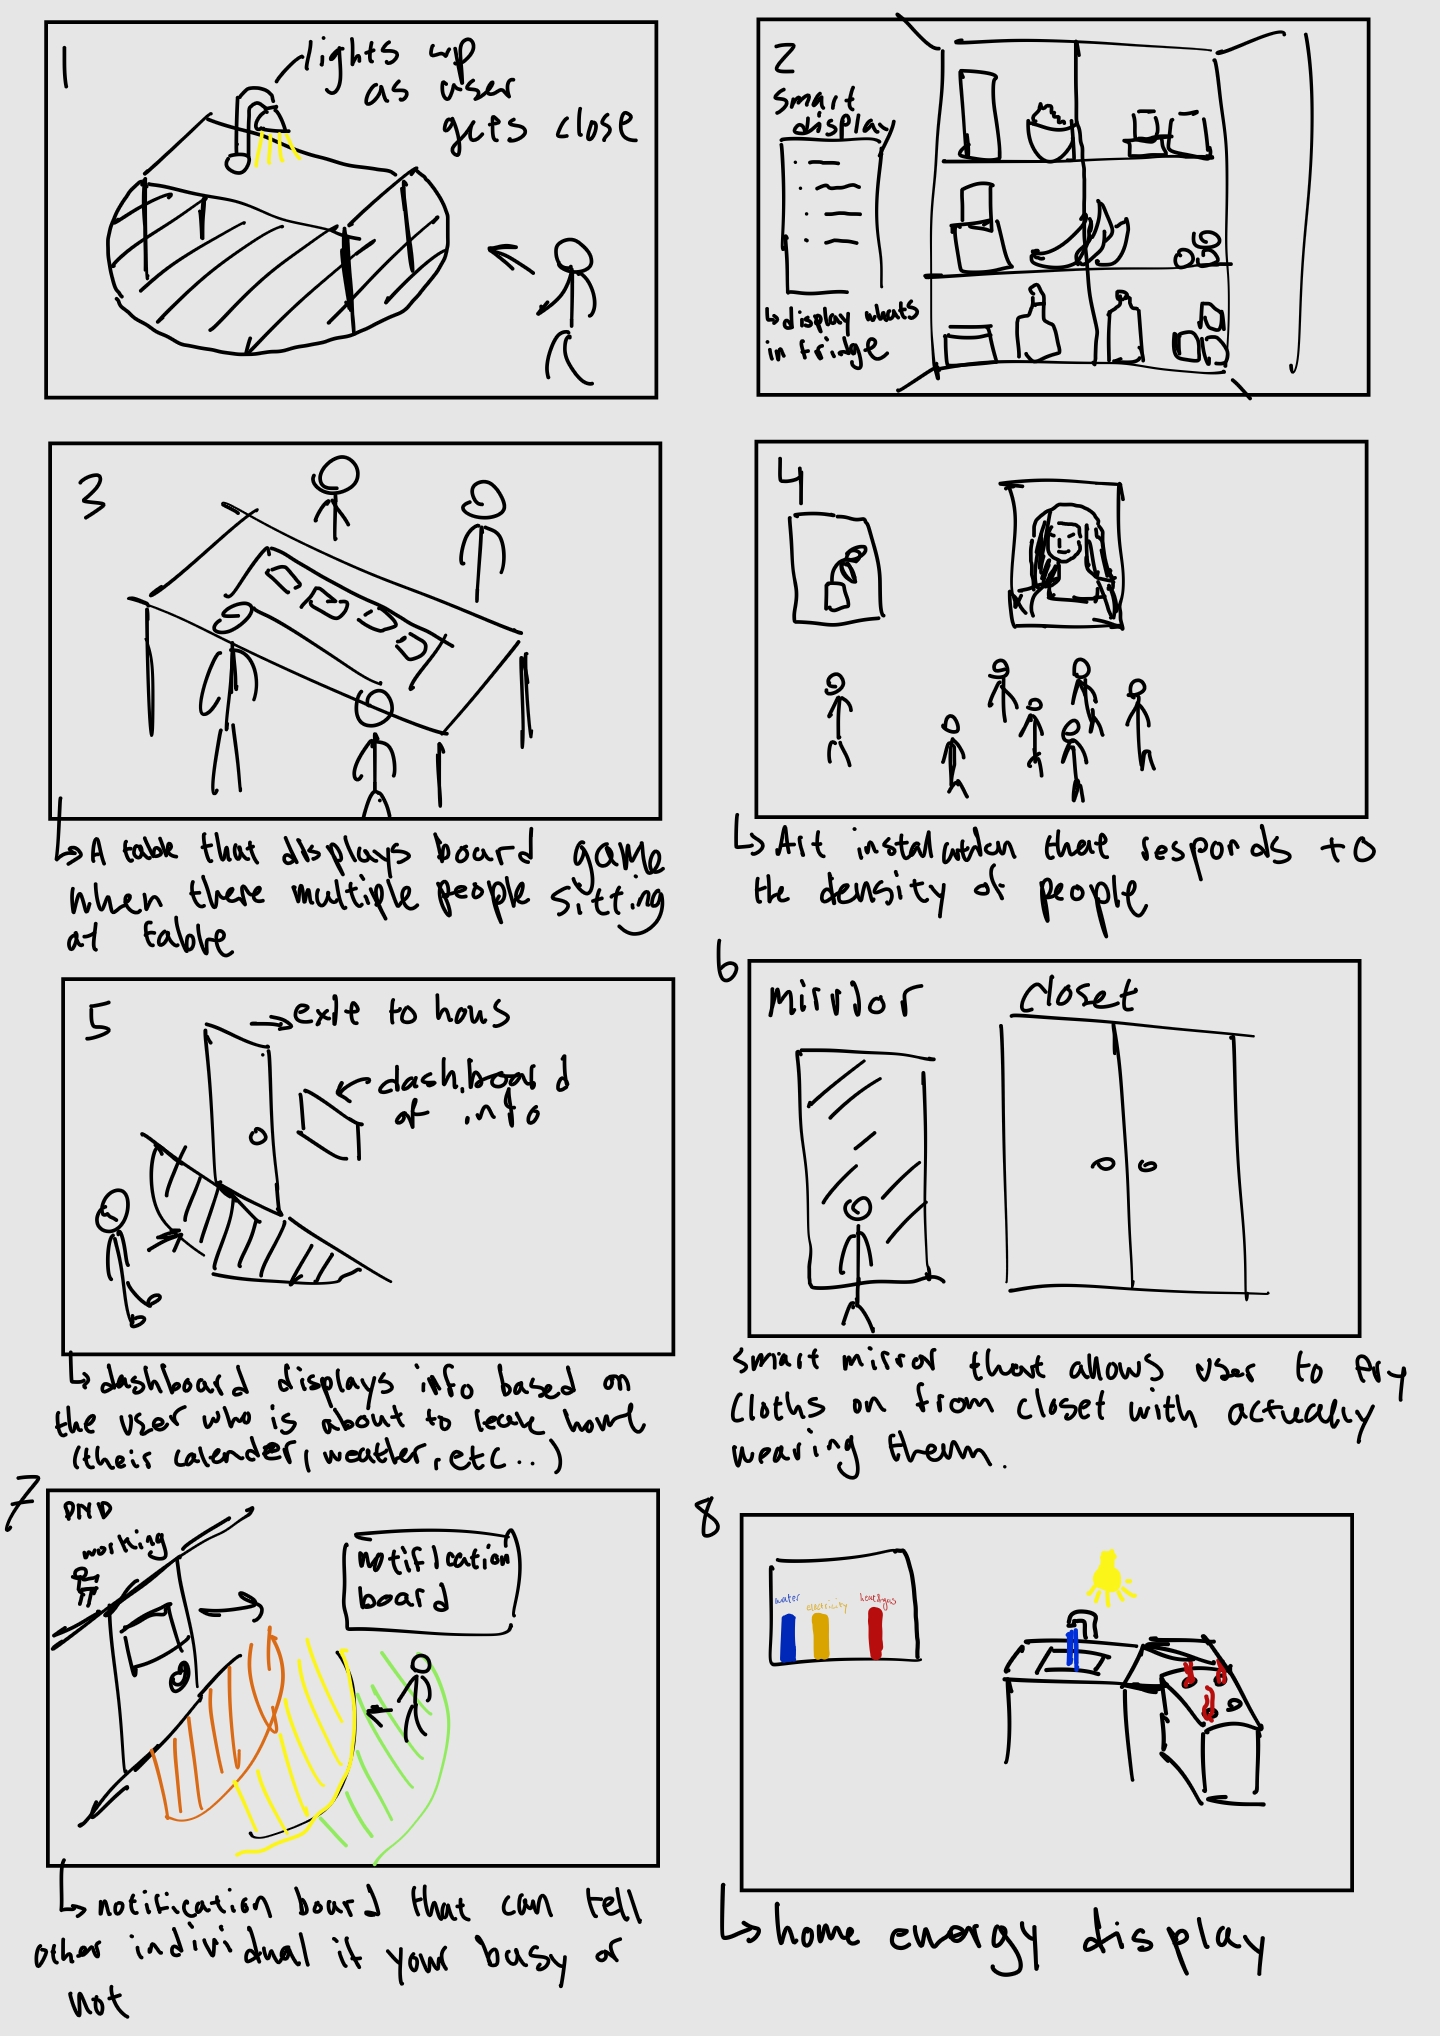 1
lights up
as user
gets close
2
smart
display
↳ display whats
in fridge
3
↳ A table that displays board game
when there multiple people sitting
at table
4
↳ Art instalation that responds to
the density of people
5
→ exit to hous
dashboard
of info
↳ dashboard displays info based on
the user who is about to leave home
(their calender, weather, etc..)
6
mirror
closet
smart mirror that allows user to try
cloths on from closet with actually
wearing them.
7
DND
working
notification
board
↳ notification board that can tell
other individual if your busy or
not
8
water
electricity
heat/gas
↳ home energy display